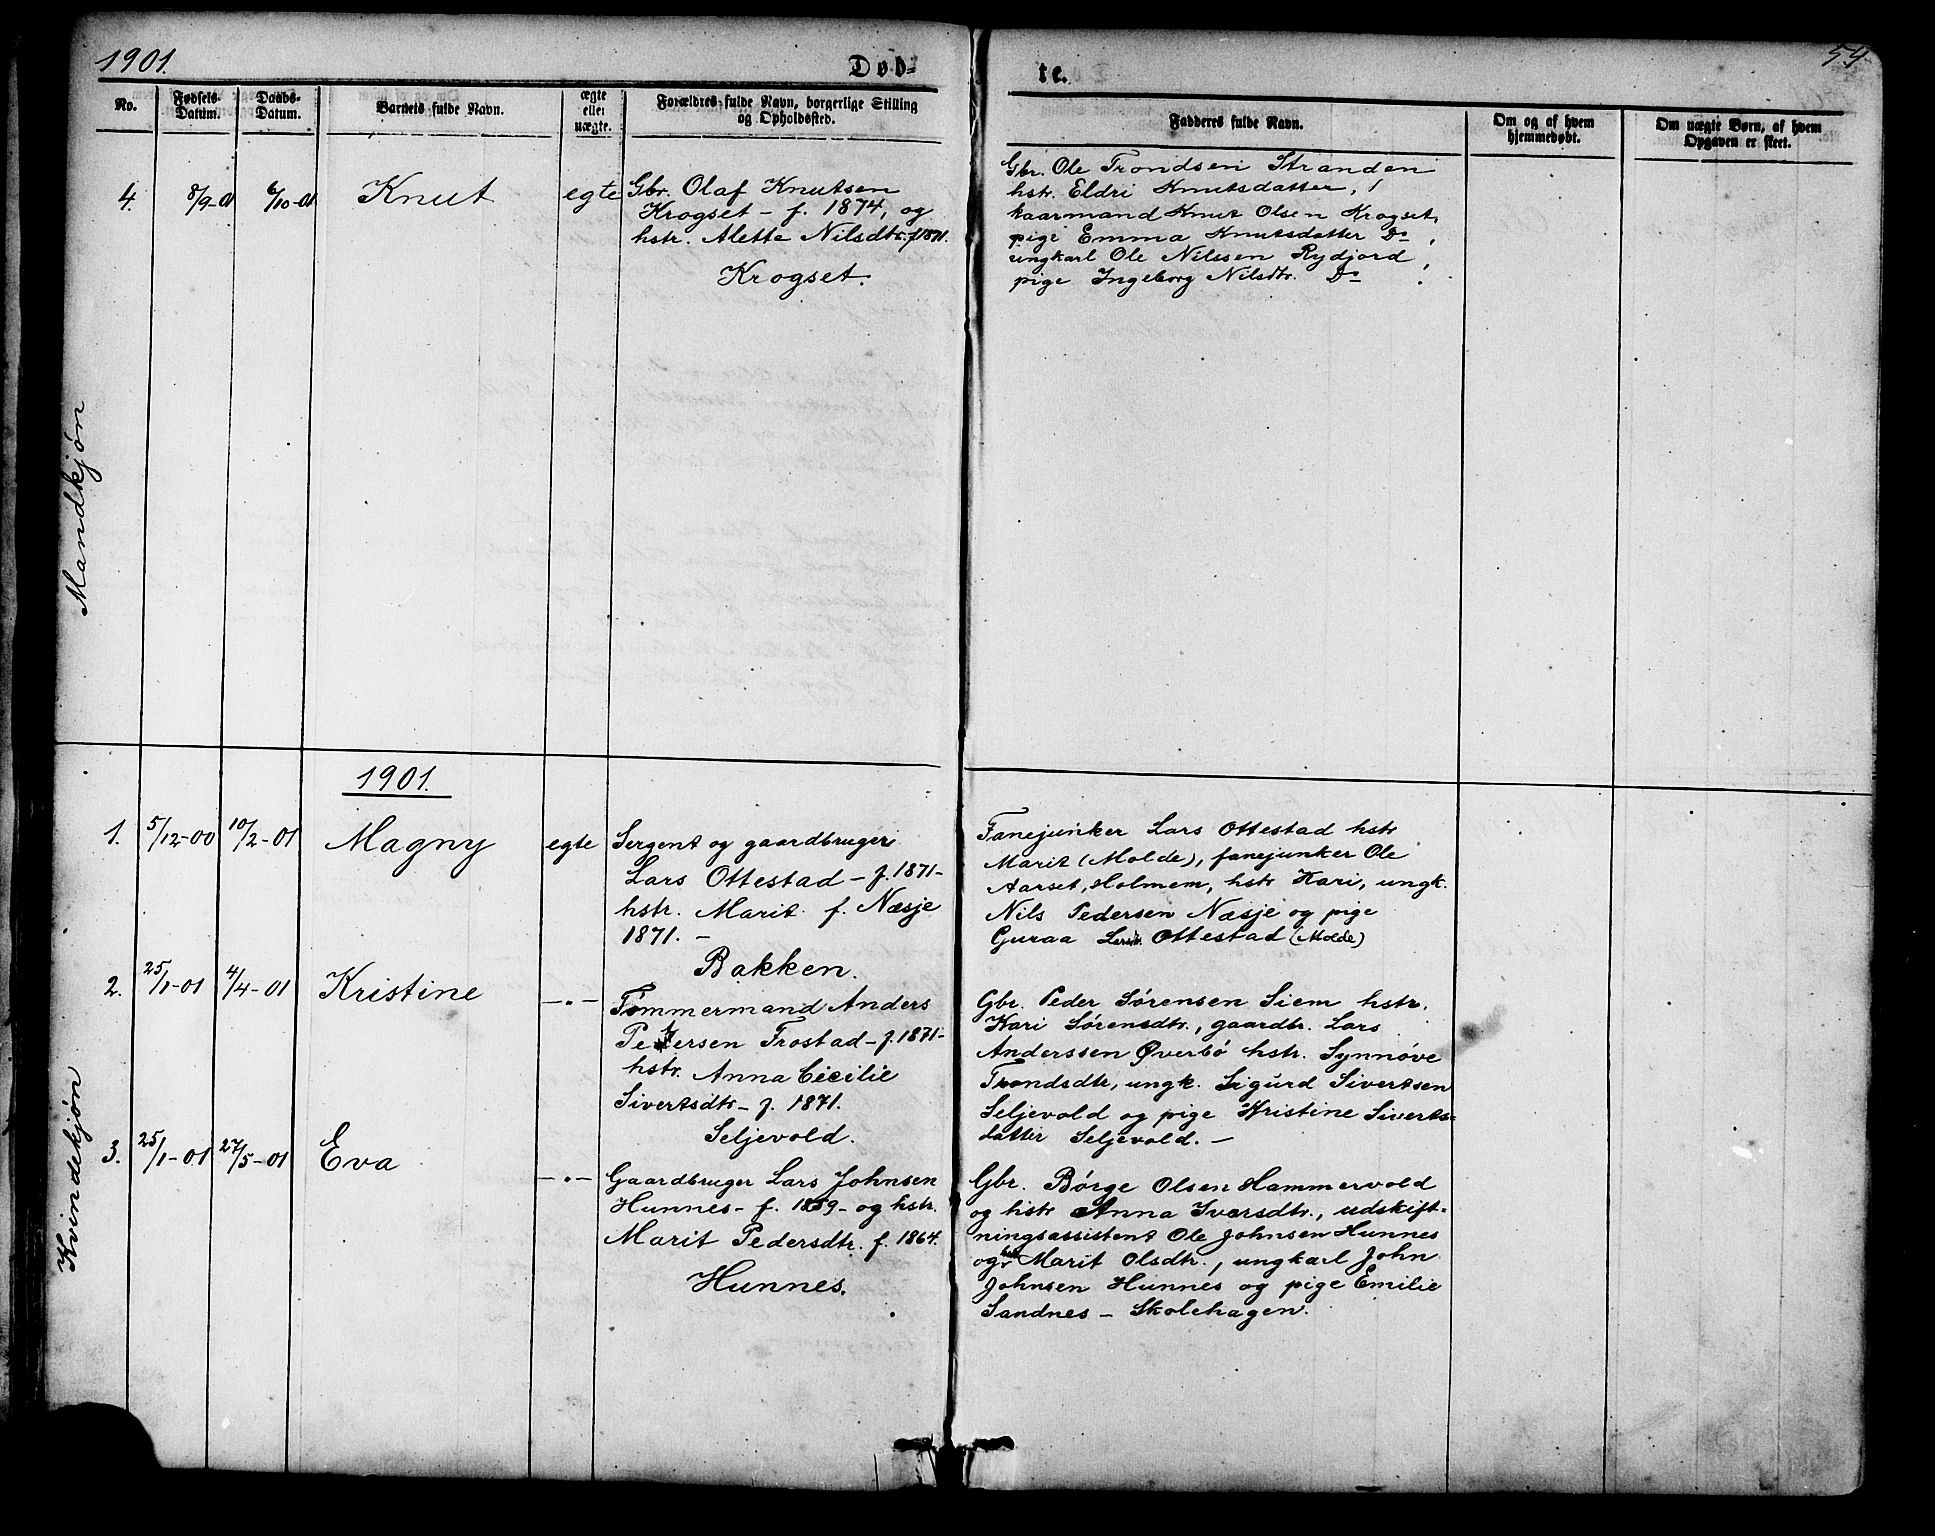 1901.
Døb-
te.
59.
No.
Fødsels-
Datum.
Daabs-
Datum.
Barnets fulde Navn.
ægte
eller
uægte.
Forældres fulde Navn, borgerlige Stilling
og Opholdssted.
Fadderes fulde Navn.
Om og af hvem
hjemmedøbt.
Om uægte Børn, af hvem
Opgaven er skeet.
Mandkjøn
4. 8/9-01 6/10-01 Knut egte
Gbr. Olaf Knutsen
Krogset - f. 1874, og
hstr. Alette Nilsdtr. f 1871.
Krogset.
Gbr. Ole Trondsen Stranden
hstr. Eldri Knutsdatter,
kaarmand Knut Olsen Krogset,
pige Emma Knutsdatter Do,
ungkarl Ole Nilssen Rydjord,
pige Ingeborg Nilsdtr. Do.
1901.
Kvindekjøn
1. 5/12-00 10/2-01 Magny egte
Sergent og gaardbruger
Lars Ottestad - f. 1871-
hstr. Marit f. Næsje
1871. -
Bakken.
Fanejunker Lars Ottestad hstr
Marit (Molde), fanejunker Ole
Aarset, Holmem, hstr Kari, ungk.
Nils Pedersen Næsje og pige
Guraa Ottestad (Molde)
2. 25/1-01 4/4-01 Kristine -"-
Tømmermand Anders
Petersen Frostad - f. 1871-
hstr. Anna Cecilie
Sivertsdtr - f. 1871.
Seljevold.
Gbr. Peder Sørensen Siem hstr.
Kari Sørensdtr., gaardbr. Lars
Anderssen Øverbø hstr. Synnøve
Trondsdtr, ungk. Sigurd Sivertsen
Seljevold og pige Kristine Siverts-
datter Seljevold. -
3. 25/1-01 27/5-01 Eva -"-
Gaardbruger Lars Johnsen
Hunnes - f. 1859 - og hstr.
Marit Pedersdtr. f. 1864.
Hunnes.
Gbr. Børge Olsen Hammervold
og hstr Anna Iversdtr., udskift-
ningsassistent Ole Johnsen Hunnes
og hstr Marit Olsdtr., ungkarl John
Johnsen Hunnes og pige Emilie
Sandnes - Skolehagen.